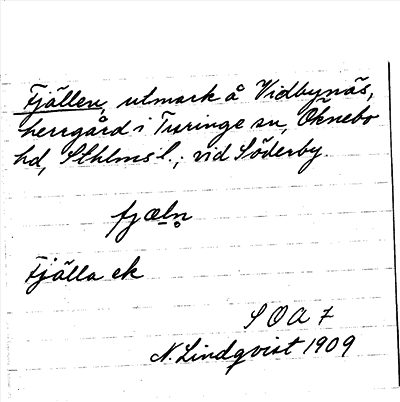 Fjällen, utmark å Vidbynäs,
herrgård i Turinge sn, Öknebo
hd, Sthlms l.; vid Söderby.
fjæln̥
Fjälla ek
SOA 7
N. Lindqvist 1909